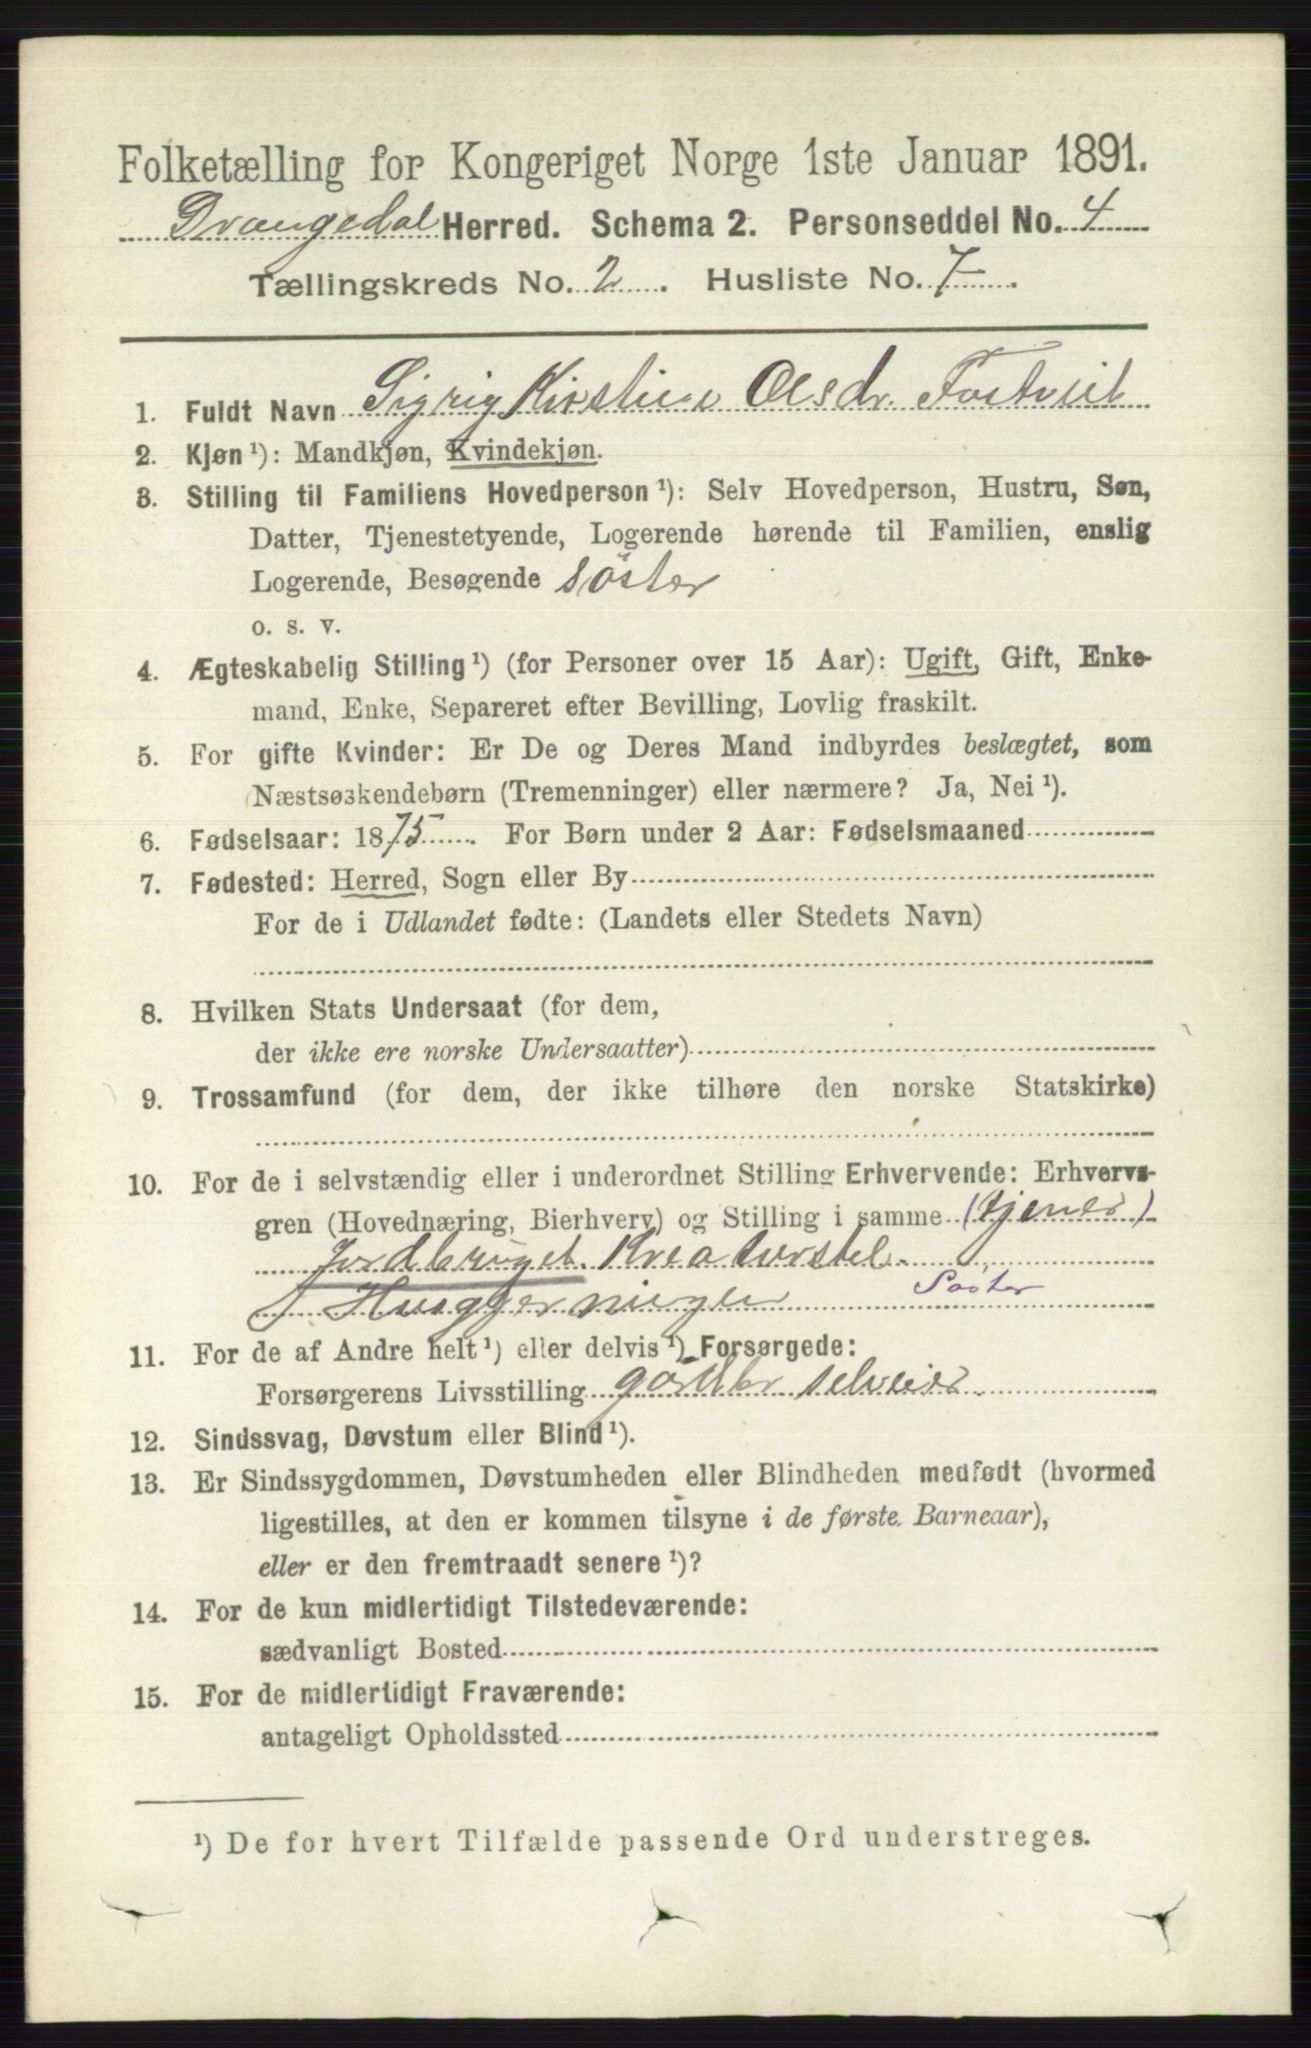 Folketælling for Kongeriget Norge 1ste Januar 1891.
Drangedal Herred. Schema 2. Personseddel No. 4
Tællingskreds No. 2. Husliste No. 7.
1. Fuldt Navn Sigrig Kirstine Olsdr. Fostveit
2. Kjøn ¹): Mandkjøn, Kvindekjøn.
3. Stilling til Familiens Hovedperson ¹): Selv Hovedperson, Hustru, Søn,
Datter, Tjenestetyende, Logerende hørende til Familien, enslig
Logerende, Besøgende söster
o. s. v.
4. Ægteskabelig Stilling ¹) (for Personer over 15 Aar): Ugift, Gift, Enke-
mand, Enke, Separeret efter Bevilling, Lovlig fraskilt.
5. For gifte Kvinder: Er De og Deres Mand indbyrdes beslægtet, som
Næstsøskendebørn (Tremenninger) eller nærmere? Ja, Nei ¹).
6. Fødselsaar: 1875. For Børn under 2 Aar: Fødselsmaaned
7. Fødested: Herred, Sogn eller By
For de i Udlandet fødte: (Landets eller Stedets Navn)
8. Hvilken Stats Undersaat (for dem,
der ikke ere norske Undersaatter)
9. Trossamfund (for dem, der ikke tilhøre den norske Statskirke)
10. For de i selvstændig eller i underordnet Stilling Erhvervende: Erhvervs-
gren (Hovednæring, Bierhverv) og Stilling i samme (tjener)
Jordbruget. Kreaturstel.
Husgjerninger Søster
11. For de af Andre helt ¹) eller delvis ¹) Forsørgede:
Forsørgerens Livsstilling gårdbr selveier
12. Sindssvag, Døvstum eller Blind ¹).
13. Er Sindssygdommen, Døvstumheden eller Blindheden medfødt (hvormed
ligestilles, at den er kommen tilsyne i de første Barneaar),
eller er den fremtraadt senere ¹)?
14. For de kun midlertidigt Tilstedeværende:
sædvanligt Bosted
15. For de midlertidigt Fraværende:
antageligt Opholdssted
¹) De for hvert Tilfælde passende Ord understreges.